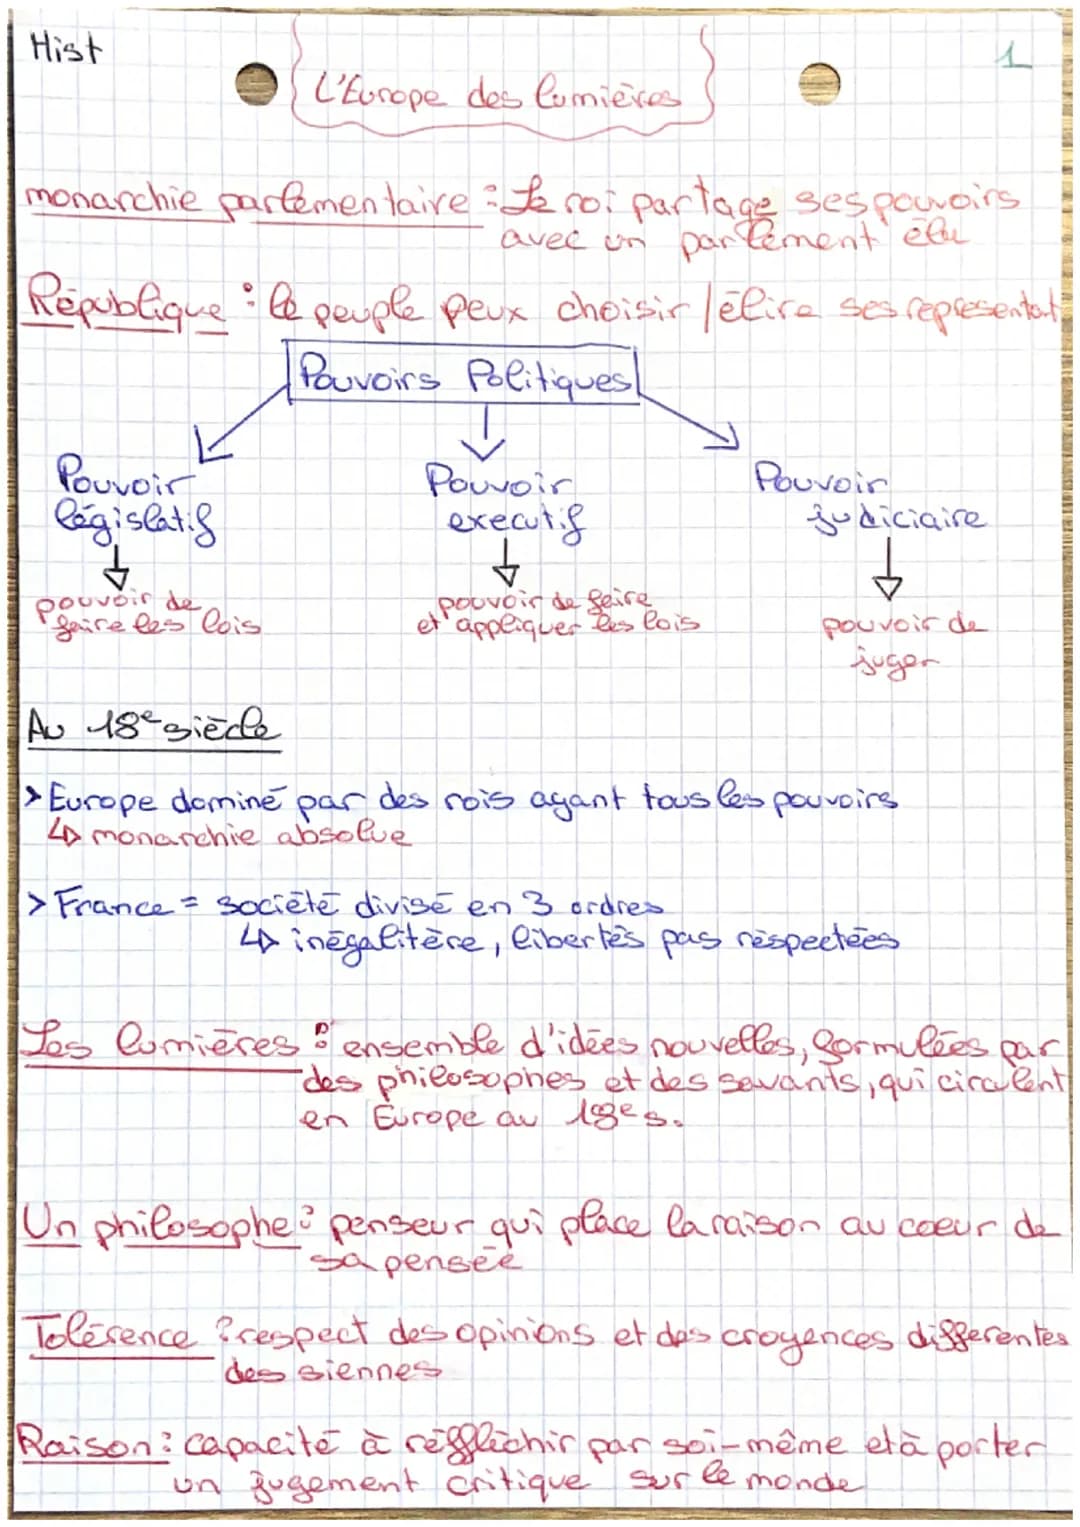 Hist
1
L'Europe des lumières
monarchie parlementaire : Le roi partage ses pouvoirs
avec un parlement élu
République : le peuple peux choisir / élire ses représentat
Pouvoirs Politiques
Pouvoir Pouvoir Pouvoir
législatif executif judiciaire
pouvoir de pouvoir de faire pouvoir de
faire les lois et appliquer les lois juger
Au 18e siècle
> Europe dominé par des rois ayant tous les pouvoirs
↳ monarchie absolue
> France = société divisé en 3 ordres
↳ inégalitère, libertés pas réspectées
Les lumières : ensemble d'idées nouvelles, formulées par
des philosophes et des savants, qui circulent
en Europe au 18e s.
Un philosophe : penseur qui place la raison au coeur de
sa pensée
Tolérence : respect des opinions et des croyences differentes
des siennes
Raison : capacité à réfflèchir par soi-même et à porter
un jugement critique sur le monde